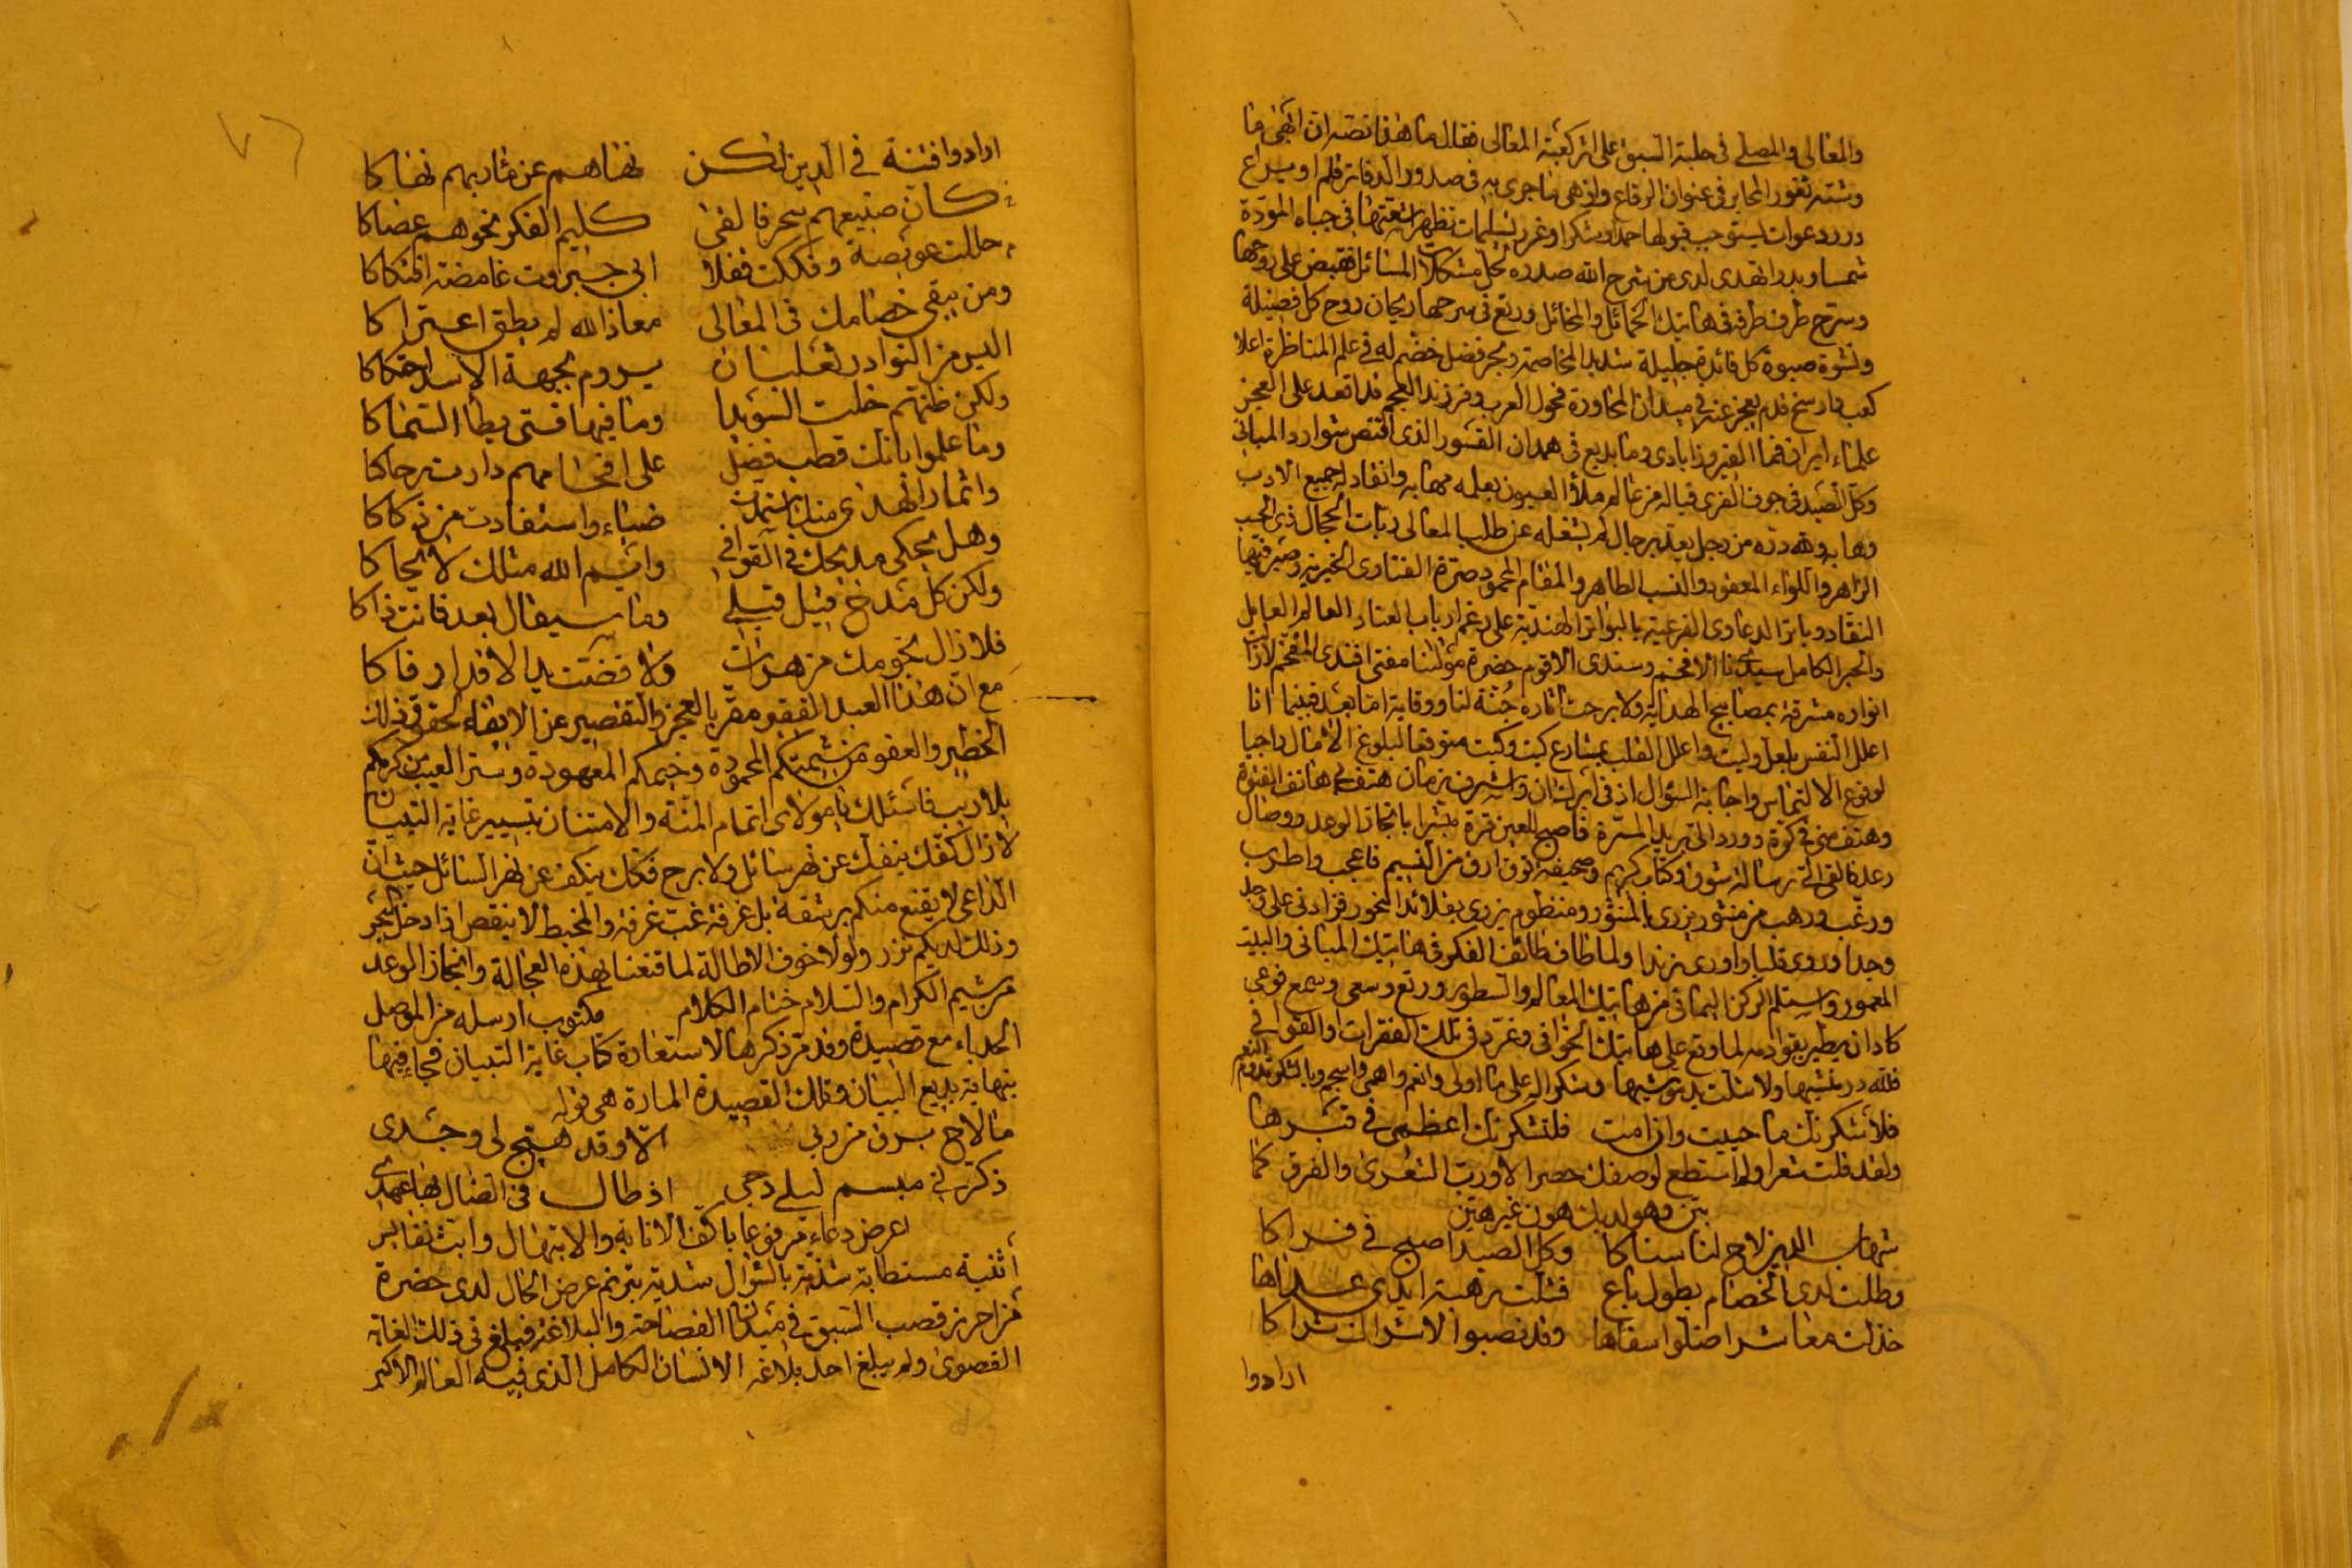 والمعالى والمصلى فى حلبة السبق على اثر كعبة المعالى فقال ما هذا نصه ان ابهى ما
وشته ثغور المحابر فى عنوان الرقاع وازهى ما جرى به فى صدور الدفاتر قلم او يراع
درر دعوات يستوجب قبولها حمدا وشكرا وغرر تسليمات تظهر اشعتها فى جباه المودة
شمسا وبدرا تهدى لدى من شرح الله صدره لحل مشكلات المسائل فقبض على روحها
وسرح طرف طرفه فى هاتيك الخمائل والمخائل ورتع فى سرحها ريحان روح كل فضيلة
ونشوة صبوة كل فائدة جليلة شديد المخاصمة وبحر فضل خضم له فى علم المناظرة اعلا
كعب وارسخ قدم يعجز عنه فى ميدان المحاورة فحول العرب وفرزند العجم قد اقعد على العجز
علماء ايران فما الفيروزابادى وما بديع فى همدان القسور الذى اقتنص شوارد المبانى
وكل الصيد فى جوف الفرى فياله من عالم ملأ العيون بعلمه مهابه وانقاد له جميع الادب
وهابه ولله دره من رجل يعد برجال لم يشغله عن طلب المعالى ربات الحجال ذى الحسب
الزاهر واللواء المعقود والنسب الطاهر والمقام المحمود صرة الفتاوى الخيرية وصيرفيها
النقاد وباتر الدعاوى الفرعية بالبواتر الهندية على رغم ارباب العناد العالم العامل
والحبر الكامل سيدنا الافخم وسندى الاقوم حضرة مولانا مفتى افندى المفخم لازالت
انواره مشرقة بمصابيح الهداية ولا برحت اثاره جُنّة لنا ووقاية اما بعد فبينما انا
اعلل النفس بلعل وليت واعلل القلب بمشارع كيت وكيت متوقعا لبلوغ الامال راجيا
لوقوع الالتماس واجابة السؤال اذ فى ابرك ان واشرف زمان هتف بى هاتف الفتوة
وهتف منى فكرة وورد الىّ بريد المسرة فاصبح للعين قرة مبشرا بانجاز الوعد ووصال
دعد فالقى الىّ رسالة شوق وكتاب كريم وصحيفة ذوق ارق من النسيم فاعجب واطرب
ورغب ورهب من منثور يزرى بالمنثور ومنظوم يزرى بقلائد النحور فزادنى على وجد
وجدا وروى قلبا واورى زندا ولما طاف طائف الفكر فى هاتيك المبانى والبيت
المعمور واستلم الركن اليمانى من هاتيك المعالم والسطور ورتع وسعى وسمع فوعى
كاد ان يطير بقوادمه لما وقع على هاتيك الخوافى وغرد فى تلك الفقرات والقوافى
فلله در منشيها ولا شلت يد موشيها وشكرا له على ما اولى وانعم واهمى واسجم وبالشكر تدوم النعم
فلأشكرنك ما حييت وان امت فلتشكرنك اعظمى فى قبرها
ولقد قلت شعرا ولم استطع لوصفك حصرا الا ورب الشعرى والفرق كما
بيّن وهو لديك هون غير هيّن
شهاب الدين لاح لنا سناكا وكل الصيد اصبح فى فراكا
وطلت لدى الخصام بطول باع فشلت رهبة ايدى عداها
خذلت معاشرا ضلوا سفاها وقد نصبوا الاشراك شراكا
ارادوا
ارادوا فتنة فى الدين لكن نهاهم عن مأربهم نهاكا
كان صنيعهم سحر فالقى كليم الفكر نحوهم عصاكا
حللت عويصة وفككت قفلا ابى جبراوت غامضة افتكاكا
ومن يبقى خصامك فى المعالى معاذ الله لم يطق اعتراكا
اليس من النوادر ثعلبان يروم بجبهة الاسد احتكاكا
ولكن ظنهم خلت السويدا وما فيها فتى يطأ السماكا
وما علموا بانك قطب فضل على افخامهم دارت رحاكا
واقمار الهدى منك استمدت ضياء واستفادت من ذكاكا
وهل يحكى مديحك فى القوافى وايم الله مثلك لا يحاكا
ولكن كل مدح قيل قبلى وما سيقال بعد فانت ذاكا
فلا زالت نجومك مزهرات ولا فضت يد الاقدار فاكا
مع ان هذا العبد الفقير مقر بالعجز والتقصير عن الايفاء لحقوق ذلك
الخطير والعفو من شيمتكم المحمودة وخيمكم المعهودة وستر العيب من كرمكم
بلا ريب فاسئلك يا مولاى اتمام المنة والامتنان بتسيير غاية التبيان
لازال كفك ينفك عن نهر سائل ولا برح فكك ينكف عن نهر السائل حيث ان
الداعى لا يقنع منكم برشفة بل غرفة غب غرفة والمخيط لا ينقص اذا دخل البحر
وذلك لديكم نزر ولولا خوف الاطالة لما قنعنا بهذه العجالة وانجاز الوعد
من شيم الكرام والسلام ختام الكلام مكتوب ارسله من الموصل
الحدباء مع قصيدة وقد مر ذكرها لاستعارة كتاب غاية التبيان فجاء فيها
بنهاية بديع البيان وتلك القصيدة المارة هى قوله
ما لاح برق من ربى الا وقد هيج لى وجدى
ذكرنى مبسم ليلى دجى اذ طال فى الضال بها عهدى
اعرض دعاء مرفوعا باكف الانابة والابتهال وابث نفايس
أثنية مستطابة شذية بالسؤال شدية بترنم عرض الحال لدى حضرة
من احرز قصب السبق فى ميدان الفصاحة والبلاغة فبلغ فى ذلك الغاية
القصوى ولم يبلغ احد بلاغه الانسان الكامل الذى فيه العالم الاكبر